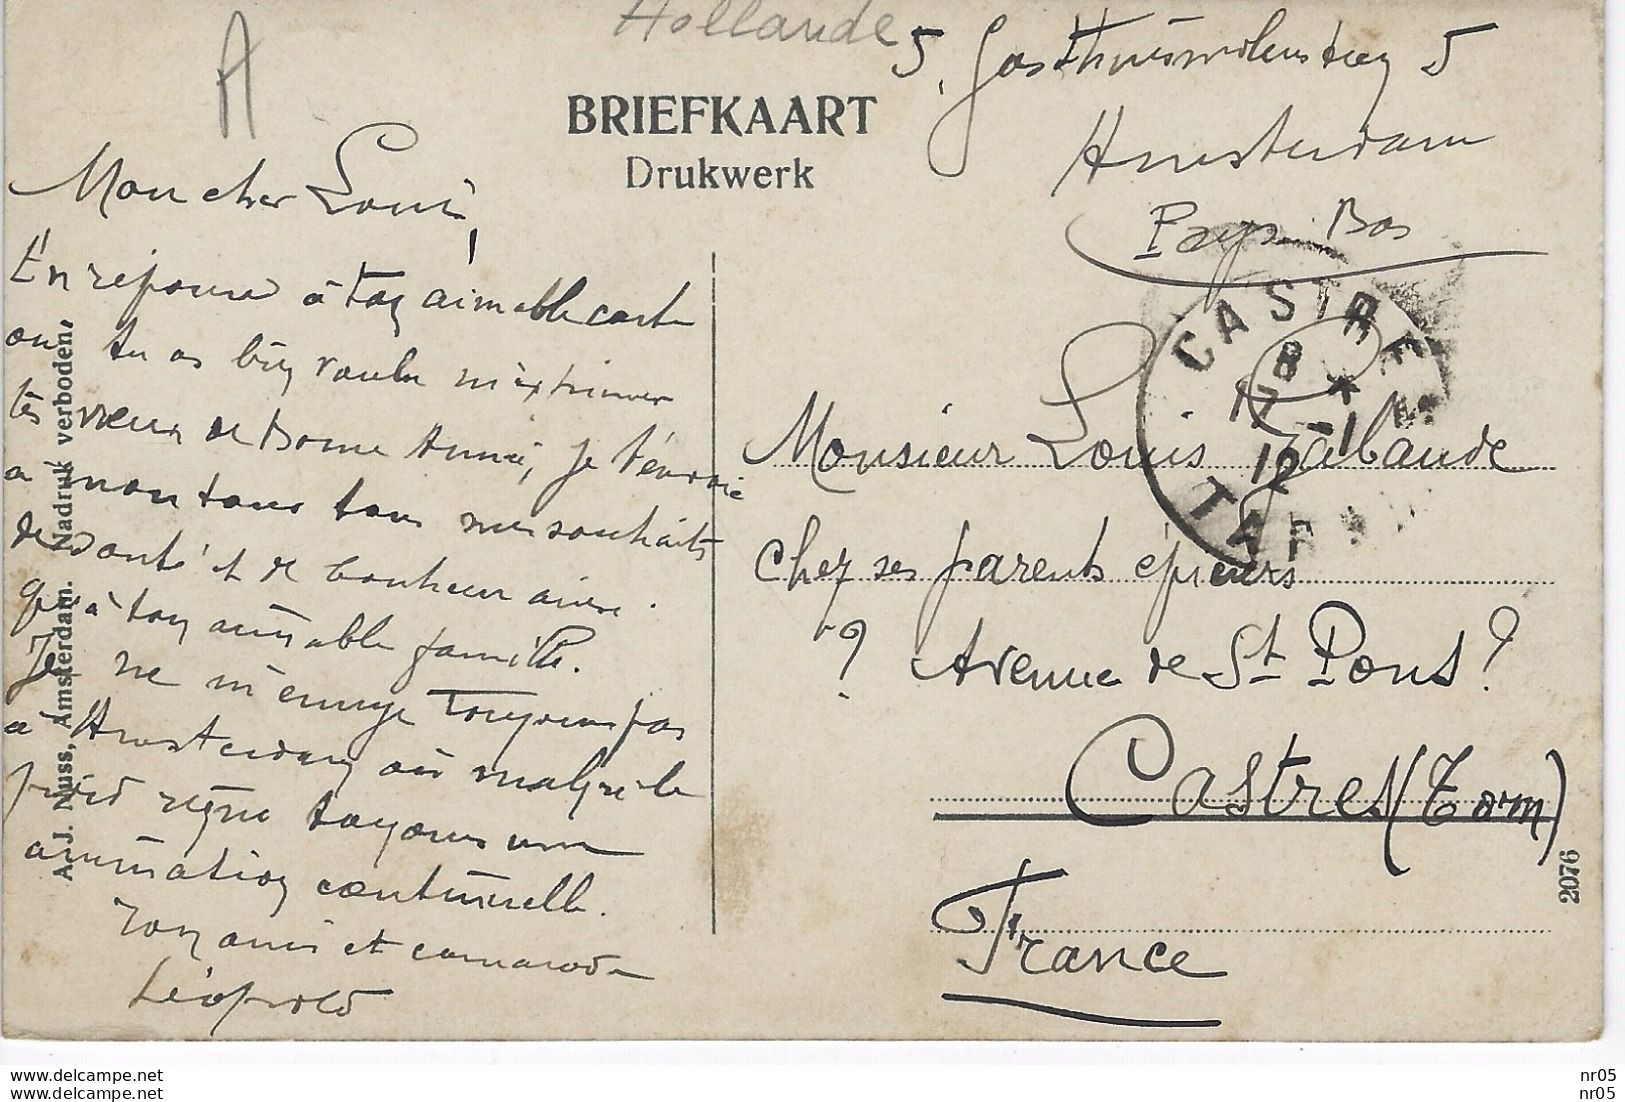 A
Hollande
5, Gasthuismolensteeg 5
Amsterdam
Pays-Bas
BRIEFKAART
Drukwerk
Mon cher Louis,
En réponse à ton aimable carte
où tu as bien voulu m'exprimer
tes vœux de bonne année, je t'envoie
à mon tour tous mes souhaits
de santé et de bonheur ainsi
qu'à ton aimable famille.
Je ne m'ennuye toujours pas
à Amsterdam où malgré le
froid règne toujours une
animation continuelle.
Ton ami et camarade
Léopold
A. J. Nuss, Amsterdam. Nadruk verboden.
CASTRES
8 *
17 - 1
12
TARN
Monsieur Louis Labaude
chez ses parents épiciers
? Avenue de St Pons ?
Castres (Tarn)
France
2076
delcampe.net
delcampe.net
nr05
nr05